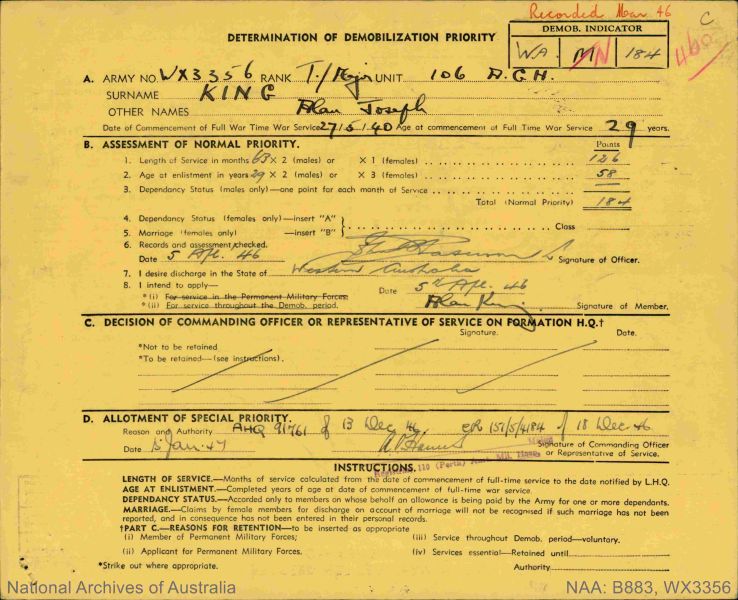 Recorded Mar 46
C
DETERMINATION OF DEMOBILIZATION PRIORITY
DEMOB. INDICATOR
WA. M N 184
460
A. ARMY NO. WX3356 RANK T./Major UNIT 106 A.G.H.
SURNAME KING
OTHER NAMES Alan Joseph
Date of Commencement of Full War Time War Service 27/5/40 Age at commencement of Full Time War Service 29 years.
B. ASSESSMENT OF NORMAL PRIORITY.
Points
1. Length of Service in months 63 × 2 (males) or × 1 (females) 126
2. Age at enlistment in years 29 × 2 (males) or × 3 (females) 58
3. Dependancy Status (males only)—one point for each month of Service
Total (Normal Priority) 184
4. Dependancy Status (females only)—insert "A"
5. Marriage (females only) —insert "B" Class
6. Records and assessment checked.
Date 5 Apl. 46 Signature of Officer.
7. I desire discharge in the State of Western Australia
8. I intend to apply— Date 5th Apl. 46
*(i) For service in the Permanent Military Forces.
*(ii) For service throughout the Demob. period. Alan King Signature of Member.
C. DECISION OF COMMANDING OFFICER OR REPRESENTATIVE OF SERVICE ON FORMATION H.Q.†
Signature. Date.
*Not to be retained
*To be retained—(see instructions).
D. ALLOTMENT OF SPECIAL PRIORITY.
Reason and Authority AHQ 91761 of 13 Dec 46 157/5/4184 of 18 Dec 46
Date 15 Jan. 47 Signature of Commanding Officer
or Representative of Service.
110 (Perth) Mil.
INSTRUCTIONS.
LENGTH OF SERVICE.—Months of service calculated from the date of commencement of full-time service to the date notified by L.H.Q.
AGE AT ENLISTMENT.—Completed years of age at date of commencement of full-time war service.
DEPENDANCY STATUS.—Accorded only to members on whose behalf an allowance is being paid by the Army for one or more dependants.
MARRIAGE.—Claims by female members for discharge on account of marriage will not be recognised if such marriage has not been
reported, and in consequence has not been entered in their personal records.
†PART C.—REASONS FOR RETENTION—to be inserted as appropriate
(i) Member of Permanent Military Forces; (iii) Service throughout Demob. period—voluntary.
(ii) Applicant for Permanent Military Forces. (iv) Services essential—Retained until
*Strike out where appropriate. Authority
National Archives of Australia NAA: B883, WX3356